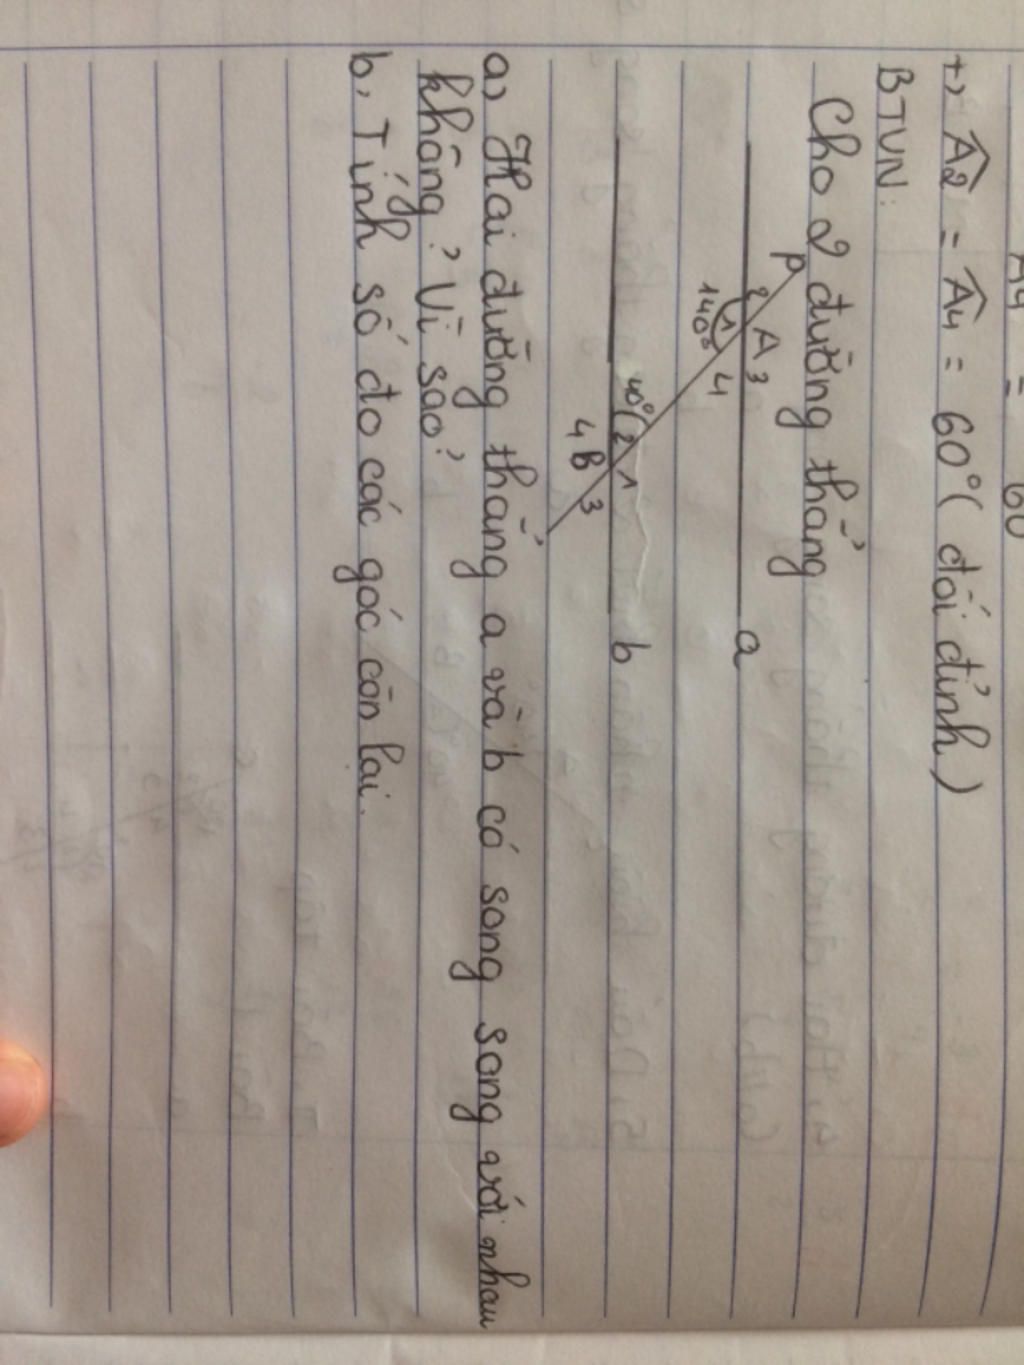 A4 = 60
+) A2 = A4 = 60° ( đối đỉnh )
BTVN:
Cho 2 đường thẳng
p
2 A 3 a
1 4
140°
40° 2 1 b
4 B 3
a, Hai đường thẳng a và b có song song với nhau
không? Vì sao?
b, Tính số đo các góc còn lại.